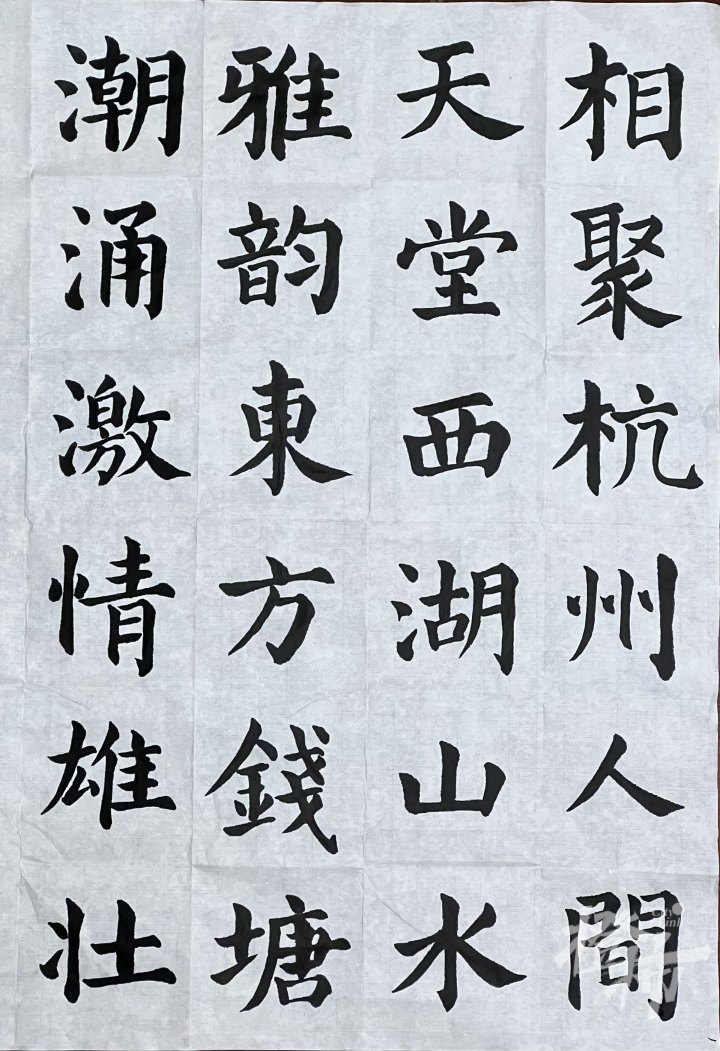 相聚杭州人間
天堂西湖山水
雅韵東方錢塘
潮涌激情雄壯